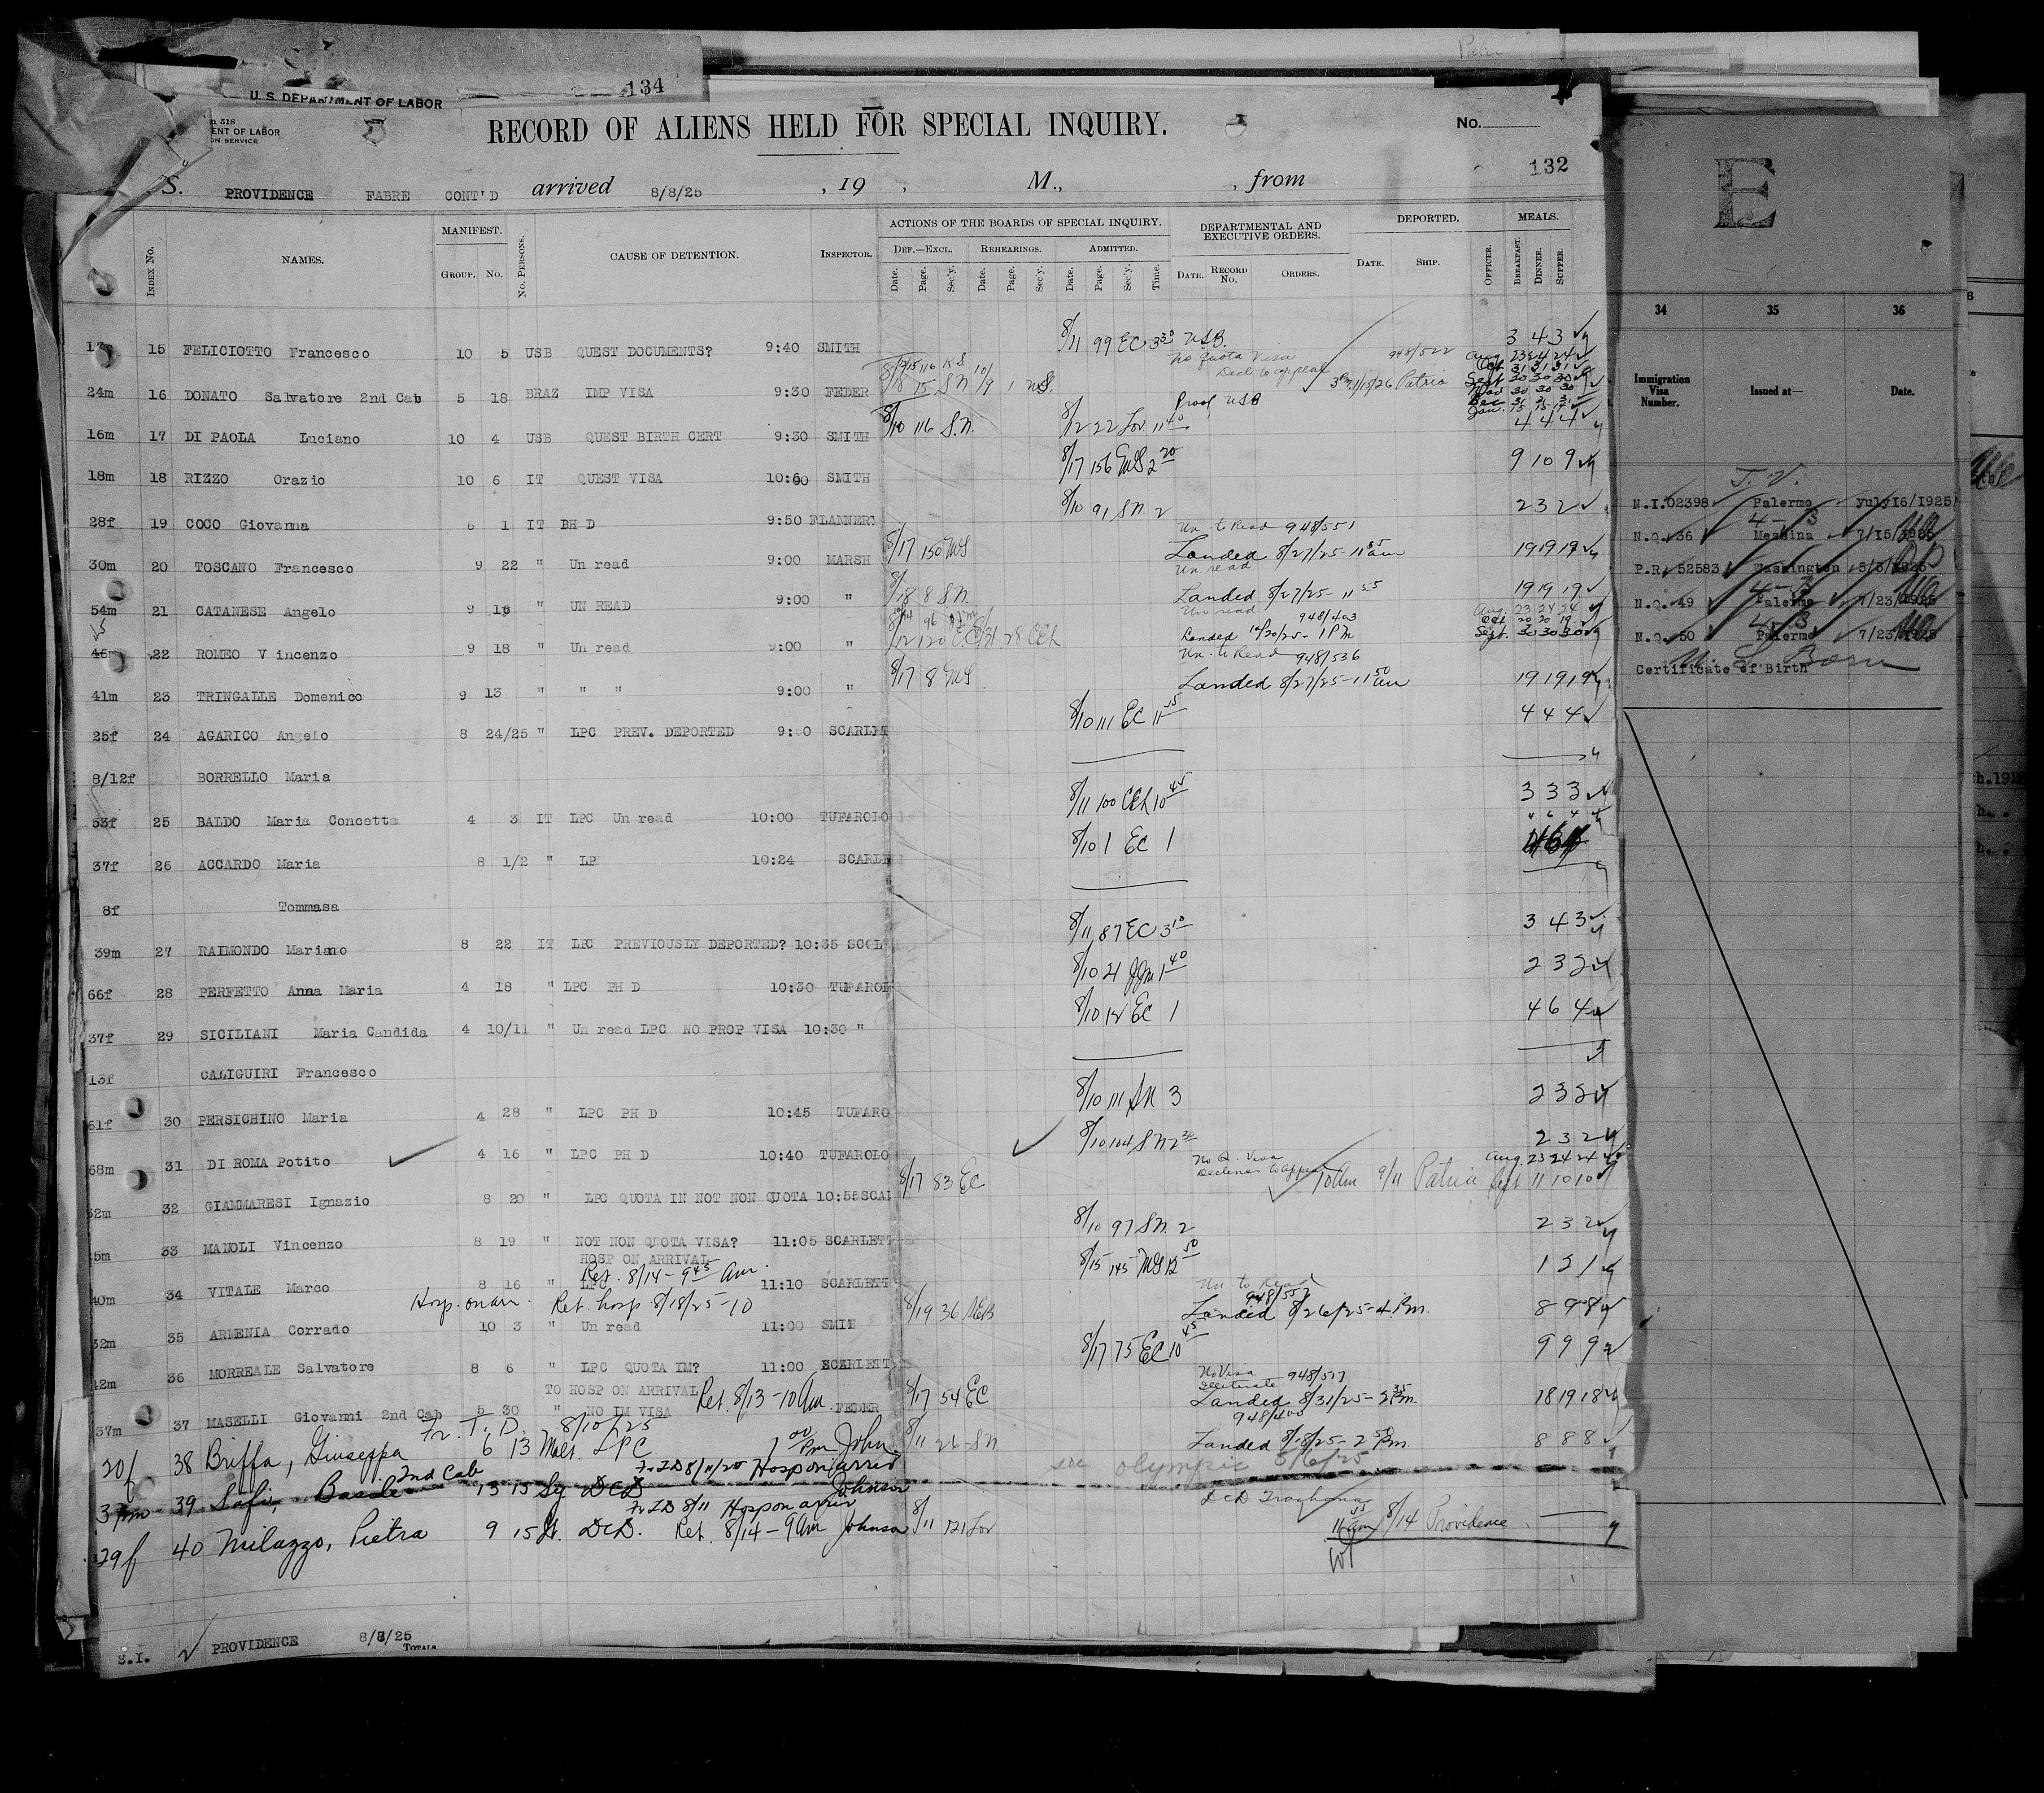 134
U. S. DEPARTMENT OF LABOR
RECORD OF ALIENS HELD FOR SPECIAL INQUIRY.
No.
132
S. PROVIDENCE FABRE CONT'D arrived 8/8/25 , 19 , M., , from
INDEX No. NAMES. MANIFEST. GROUP. No. No. PERSONS. CAUSE OF DETENTION. INSPECTOR.
ACTIONS OF THE BOARDS OF SPECIAL INQUIRY. DEPARTMENTAL AND EXECUTIVE ORDERS. DEPORTED. MEALS.
DEF.—EXCL. REHEARINGS. ADMITTED.
Date. Page. Sec'y. Date. Page. Sec'y. Date. Page. Sec'y. Time. DATE. RECORD No. ORDERS. DATE. SHIP. OFFICER. BREAKFAST. DINNER. SUPPER.
15 FELICIOTTO Francesco 10 5 USB QUEST DOCUMENTS? 9:40 SMITH 8/11 99 EC 3 30 USB. 3 4 3
No quota Visa Decl. to appeal 948/522
24m 16 DONATO Salvatore 2nd Cab 5 18 BRAZ IMP VISA 9:30 FEDER 8/18 15 SN 10/9 1 1/15/26 Patria
Proof USB
16m 17 DI PAOLA Luciano 10 4 USB QUEST BIRTH CERT 9:30 SMITH 8/10 116 S.N. 8/12 22 Lov. 11 40 4 4 4
18m 18 RIZZO Orazio 10 6 IT QUEST VISA 10:00 SMITH 8/17 156 MS 2 20 9 10 9
28f 19 COCO Giovanna 6 1 IT BH D 9:50 FLANNERY 8/10 91 SN 2 2 3 2
Un. to Read 948/551
30m 20 TOSCANO Francesco 9 22 " Un read 9:00 MARSH 8/17 150 MS Landed 8/27/25 - 11 55 am 19 19 19
Un. read
54m 21 CATANESE Angelo 9 18 " UN READ 9:00 " 8/18 8 SN Landed 8/27/25 - 11 55 19 19 19
Un read 948/403
46m 22 ROMEO Vincenzo 9 18 " Un read 9:00 " Landed 10/20/25 - 1 PM
Un. to Read 948/536
41m 23 TRINGALLE Domenico 9 13 " " " 9:00 " 8/17 8 MS Landed 8/27/25 - 11 50 am 19 19 19
25f 24 AGARICO Angelo 8 24/25 " LPC PREV. DEPORTED 9:50 SCARLET 8/10 111 EC 11 55 4 4 4
8/12f BORRELLO Maria
53f 25 BALDO Maria Concetta 4 3 IT LPC Un read 10:00 TUFAROLO 8/11 100 CCh 10 45 3 3 3
37f 26 ACCARDO Maria 8 1/2 " LP 10:24 SCARLE 8/10 1 EC 1 4 6 4
8f Tommasa
39m 27 RAIMONDO Mariano 8 22 IT LPC PREVIOUSLY DEPORTED? 10:35 8/11 87 EC 3 10 3 4 3
66f 28 PERFETTO Anna Maria 4 18 " LPC PH D 10:30 TUFAROL 8/10 21 JJM 1 40 2 3 2
37f 29 SICILIANI Maria Candida 4 10/11 " Un read LPC NO PROP VISA 10:30 " 8/10 12 EC 1 4 6 4
13f CALIGUIRI Francesco
61f 30 PERSICHINO Maria 4 28 " LPC PH D 10:45 TUFARO 8/10 111 SN 3 2 3 2
68m 31 DI ROMA Potito 4 16 " LPC PH D 10:40 TUFAROLO 8/10 104 SN 2 2 3 2
No Q. Visa Declines to appeal Aug. 23 24 24
32 GIAMMARESI Ignazio 8 20 " LPC QUOTA IN NOT NON QUOTA 10:55 SCAR 8/17 83 EC 10 am 9/11 Patria Sept 11 10 10
33 MANOLI Vincenzo 8 19 " NOT NON QUOTA VISA? 11:05 SCARLETT 8/10 97 SN. 2 2 3 2
HOSP ON ARRIVAL
Ret. 8/14 - 9 45 am.
40m 34 VITALE Marco 8 16 " LPC 11:10 SCARLETT 8/15 145 MS 12 50 1 3 1
Hosp. on arr. Ret. hosp 8/18/25 - 10 Un to Read
35 ARMENIA Corrado 10 3 " Un read 11:00 8/19 36 Landed 8/26/25 - 4 Pm. 8 9 8
36 MORREALE Salvatore 8 6 " LPC QUOTA IM? 11:00 SCARLETT 8/17 75 EC 10 45 9 9 9
TO HOSP ON ARRIVAL Ret. 8/13 - 10 am No Visa 948/577
37m 37 MASELLI Giovanni 2nd Cab 5 30 " NO IM VISA FEDER 8/17 54 EC Landed 8/31/25 - 2 35 Pm. 18 19 18
Fr. T. D. 8/10/25 948/400
20f 38 Briffa, Giuseppa 6 13 Malt. LPC 1 00 Pm John 8/11 26 SN Landed 8/18/25 - 2 50 Pm 8 8 8
2nd Cab Fr. T D 8/11/25 Hosp on arriv Olympic
39 Safi, Basile 13 15 Sy DCD Johnson
Fr. T D 8/11 Hosp on arriv DCD Trachoma
29f 40 Milazzo, Pietra 9 15 It. DCD. Ret. 8/14 - 9 am Johnson 8/11 121 Lov 11 55 am 8/14 Providence
S.I. PROVIDENCE 8/8/25 TOTALS
E
34 35 36
Immigration Visa Number. Issued at— Date.
T. V.
N.I.02398 Palermo July16/1925
4 - 3
N.Q. 36 Messina 7/15/1925
P.R. 52583 Washington 5/5/1925
4 - 3
N.Q. 49 Palermo 7/23/1925
4 - 3
N.Q. 50 Palermo 7/23/1925
Certificate of Birth U. S. Born